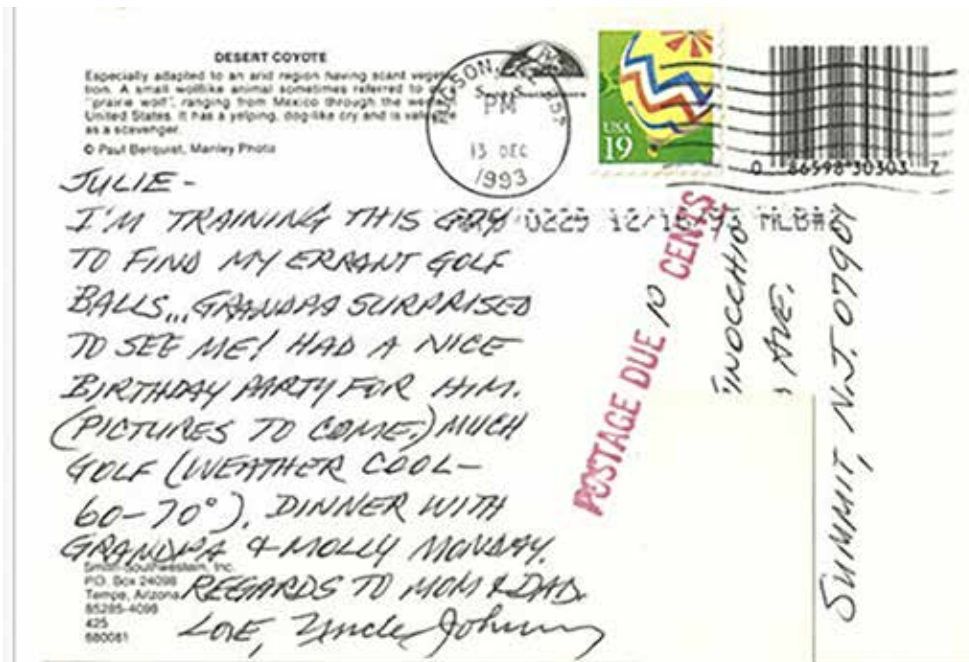 DESERT COYOTE
Especially adapted to an arid region having scant
tion. A small wolflike animal sometimes referred to
"prairie wolf", ranging from Mexico through the
United States. It has a yelping, dog-like cry and is
as a scavenger.
© Paul Berquist, Manley Photo
PM
13 DEC
1993
USA
19
0 86598 30303 2
0229 12/16/93 MLB#
JULIE -
I'M TRAINING THIS GUY
TO FIND MY ERRANT GOLF
BALLS... GRANDPA SURPRISED
TO SEE ME! HAD A NICE
BIRTHDAY PARTY FOR HIM.
(PICTURES TO COME.) MUCH
GOLF (WEATHER COOL-
60-70°). DINNER WITH
GRANDPA & MOLLY MONDAY.
REGARDS TO MOM & DAD.
LOVE, Uncle Johnny
Smith-Southwestern, Inc.
P.O. Box 24098
Tempe, Arizona
85285-4098
425
680081
POSTAGE DUE 10 CENTS
INOCCHIO
AVE.
SUMMIT, N.J. 07901